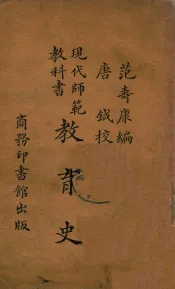 范壽康編
唐鉞校
現代師範
教科書
教育史
商務印書館出版